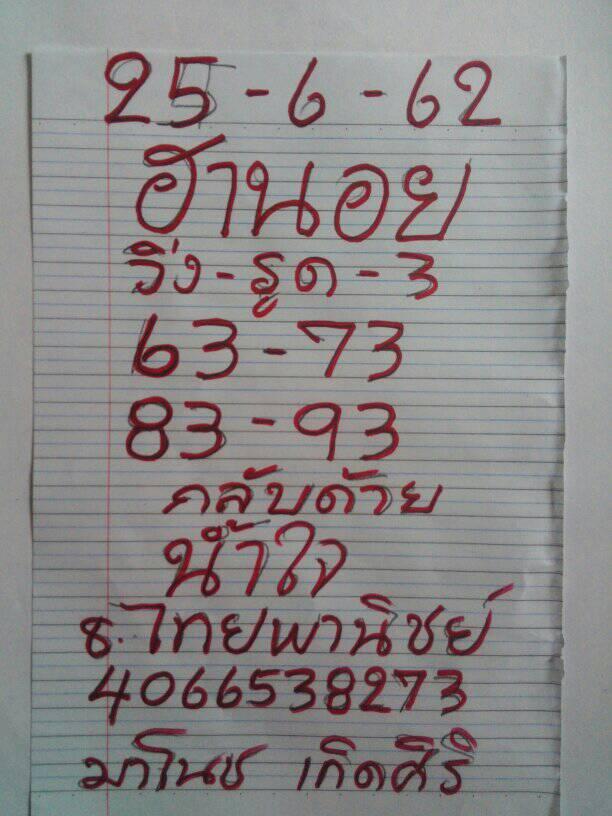 25-6-62
ฮานอย
วิ่ง-รูด-3
63-73
83-93
กลับด้วย
น้ำใจ
ธ.ไทยพานิชย์
4066538273
มาโนช เกิดศิริ